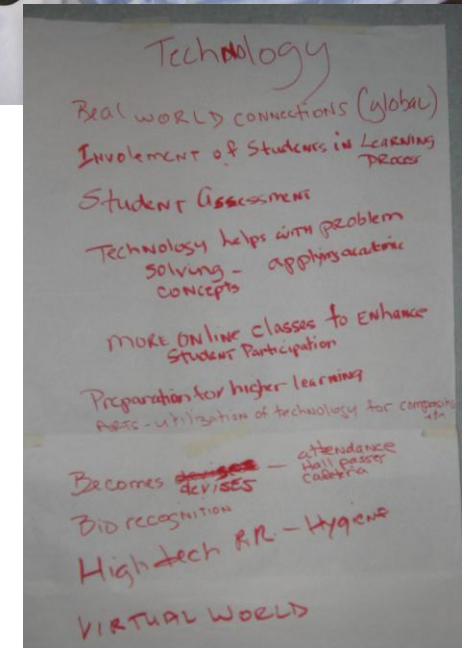 Technology
Real WORLD CONNECTIONS (global)
Involement of Students in Learning
Process
Student Assessment
Technology helps with problem
solving - applying academic
concepts
More online classes to enhance
Student Participation
Preparation for higher learning
ARTS - utilization of technology for
Becomes devises - attendance
Hall passes
cafeteria
Bio recognition
High tech RR - Hygiene
VIRTUAL WORLD